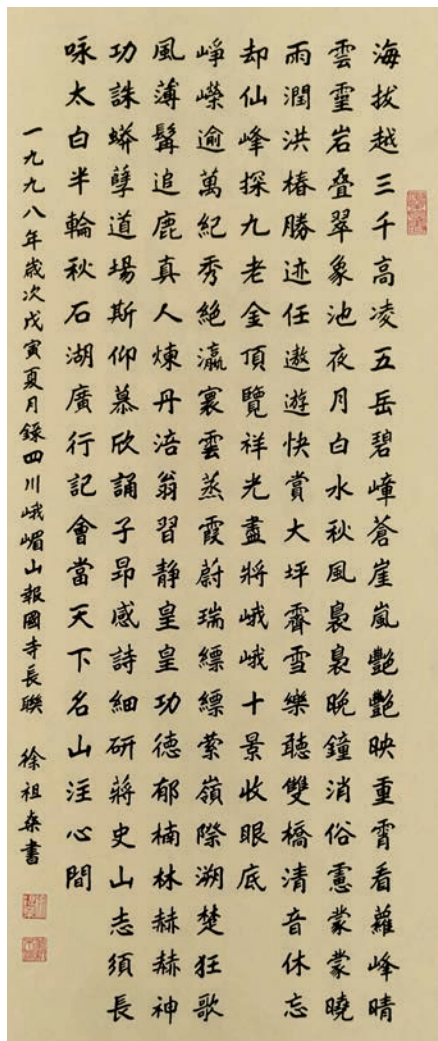 海拔越三千高凌五岳碧嶂蒼崖嵐艷艷映重霄看蘿峰晴
雲靈岩叠翠象池夜月白水秋風裊裊晚鐘消俗慮蒙蒙曉
雨潤洪椿勝迹任遨遊快賞大坪霽雪樂聽雙橋清音休忘
却仙峰探九老金頂覽祥光盡將峨峨十景收眼底
崢嶸逾萬紀秀絕瀛寰雲蒸霞蔚瑞縹縹縈嶺際溯楚狂歌
風薄髯追鹿真人煉丹涪翁習靜皇皇功德郁楠林赫赫神
功誅蟒孽道場斯仰慕欣誦子昂感詩細研蔣史山志須長
咏太白半輪秋石湖廣行記會當天下名山注心間
一九九八年歲次戊寅夏月錄四川峨嵋山報國寺長聯 徐祖燊書